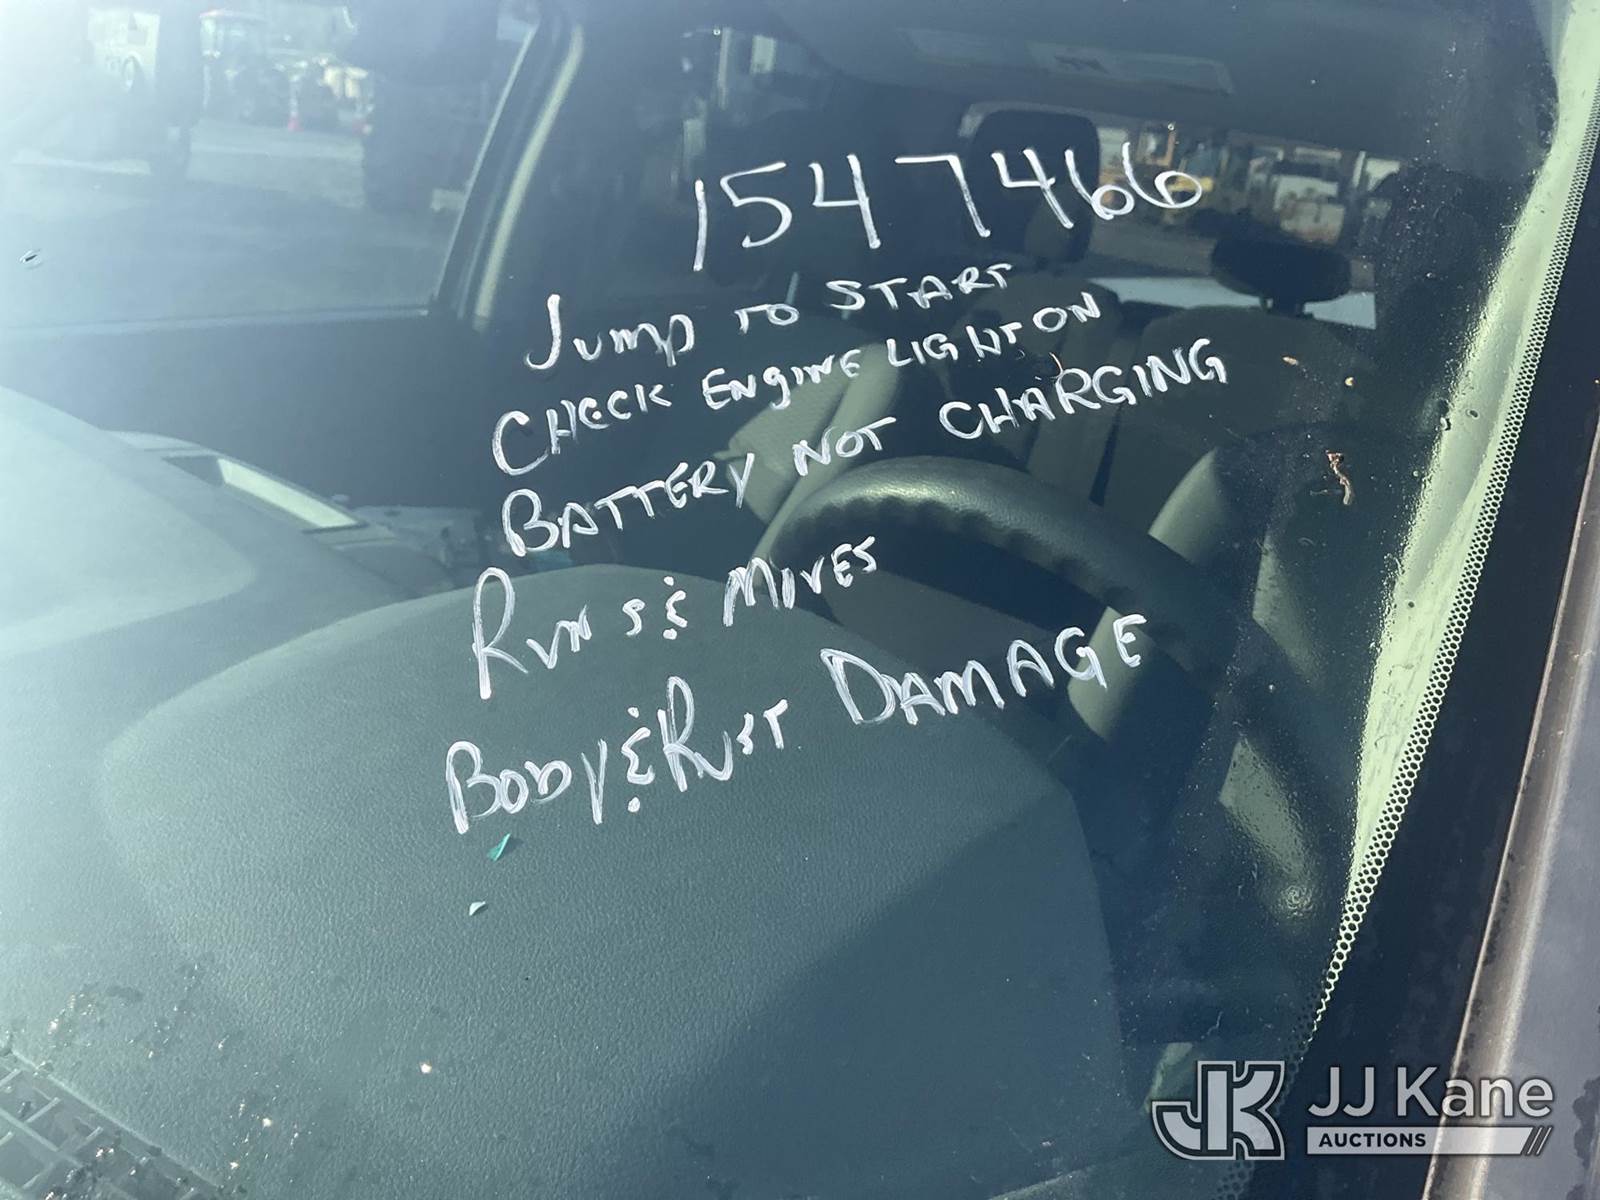 1547466
Jump to START
CHECK ENgINE LIGHT ON
BATTERY NOT CHARGING
RUNS & MOVES
BODY & RUST DAMAGE
JK JJ Kane
AUCTIONS